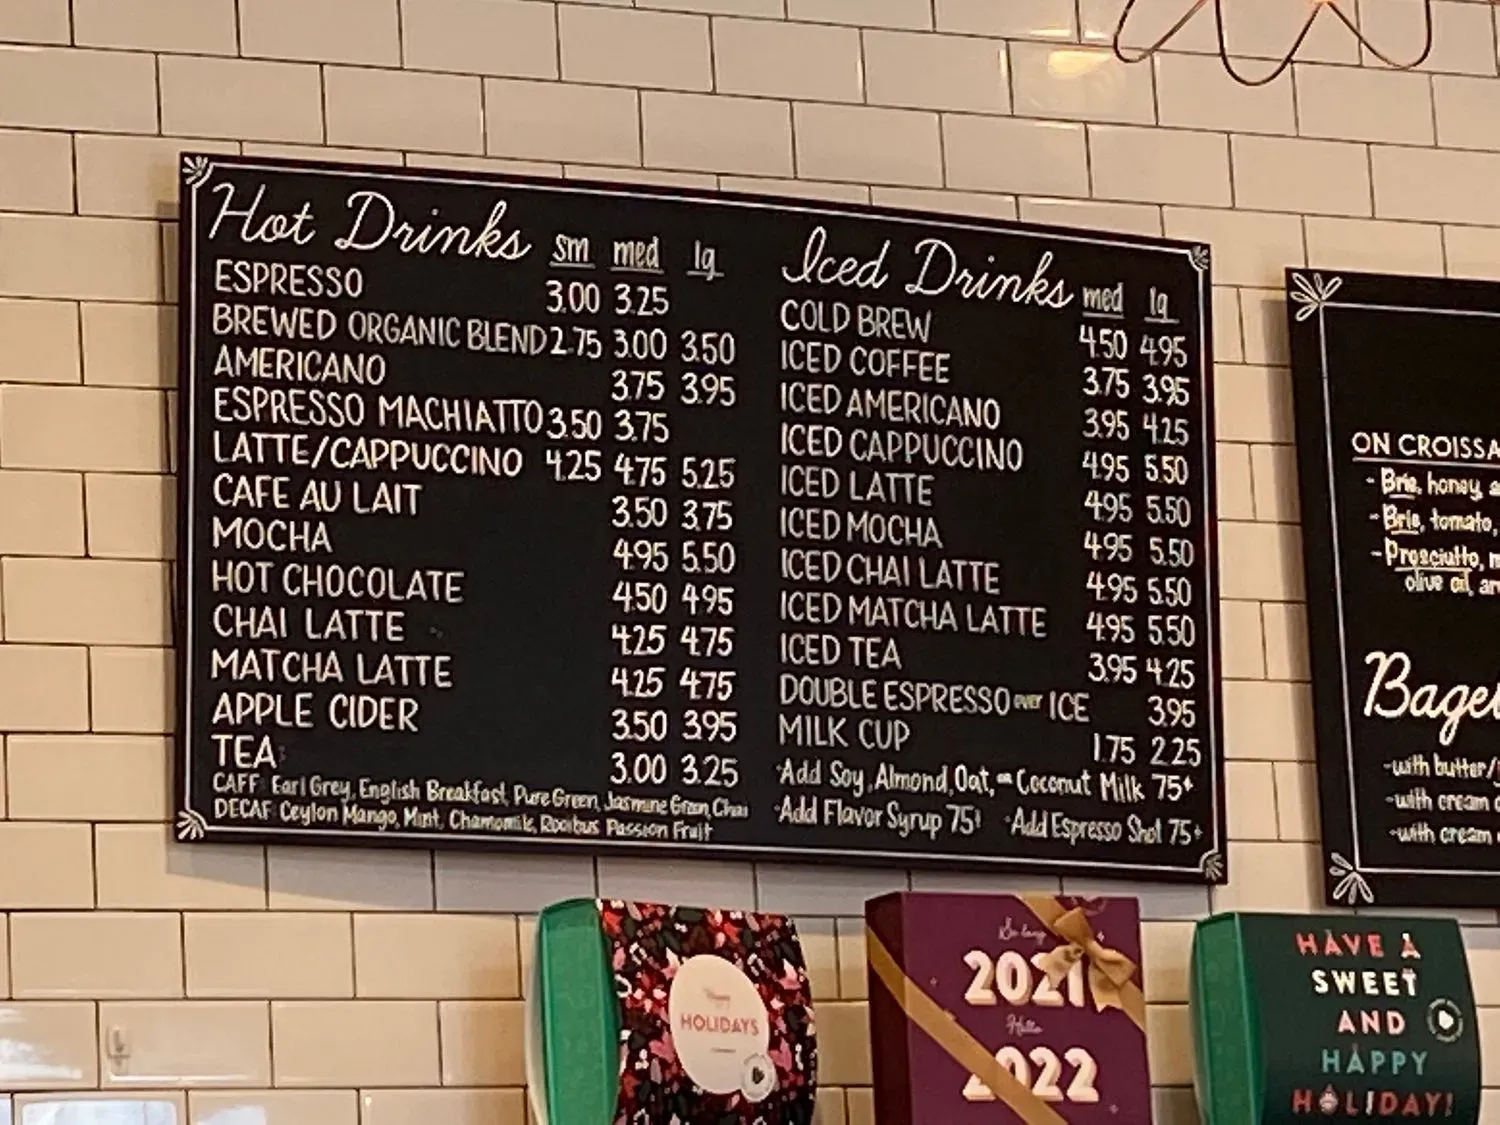 Hot Drinks sm med lg
ESPRESSO 3.00 3.25
BREWED ORGANIC BLEND 2.75 3.00 3.50
AMERICANO 3.75 3.95
ESPRESSO MACHIATTO 3.50 3.75
LATTE/CAPPUCCINO 4.25 4.75 5.25
CAFE AU LAIT 3.50 3.75
MOCHA 4.95 5.50
HOT CHOCOLATE 4.50 4.95
CHAI LATTE 4.25 4.75
MATCHA LATTE 4.25 4.75
APPLE CIDER 3.50 3.95
TEA 3.00 3.25
CAFF Earl Grey, English Breakfast, Pure Green, Jasmine Green, Chai
DECAF Ceylon Mango, Mint, Chamomile, Rooibus Passion Fruit
Iced Drinks med lg
COLD BREW 4.50 4.95
ICED COFFEE 3.75 3.95
ICED AMERICANO 3.95 4.25
ICED CAPPUCCINO 4.95 5.50
ICED LATTE 4.95 5.50
ICED MOCHA 4.95 5.50
ICED CHAI LATTE 4.95 5.50
ICED MATCHA LATTE 4.95 5.50
ICED TEA 3.95 4.25
DOUBLE ESPRESSO over ICE 3.95
MILK CUP 1.75 2.25
·Add Soy, Almond, Oat, or Coconut Milk 75¢
·Add Flavor Syrup 75¢ ·Add Espresso Shot 75¢
ON CROISSA
- Brie, honey,
- Brie, tomato,
- Prosciutto,
olive oil, an
Bagel
-with butter/
-with cream
-with cream
Happy
HOLIDAYS
So long
2021
Hello
2022
HAVE A
SWEET
AND
HAPPY
HOLIDAY!